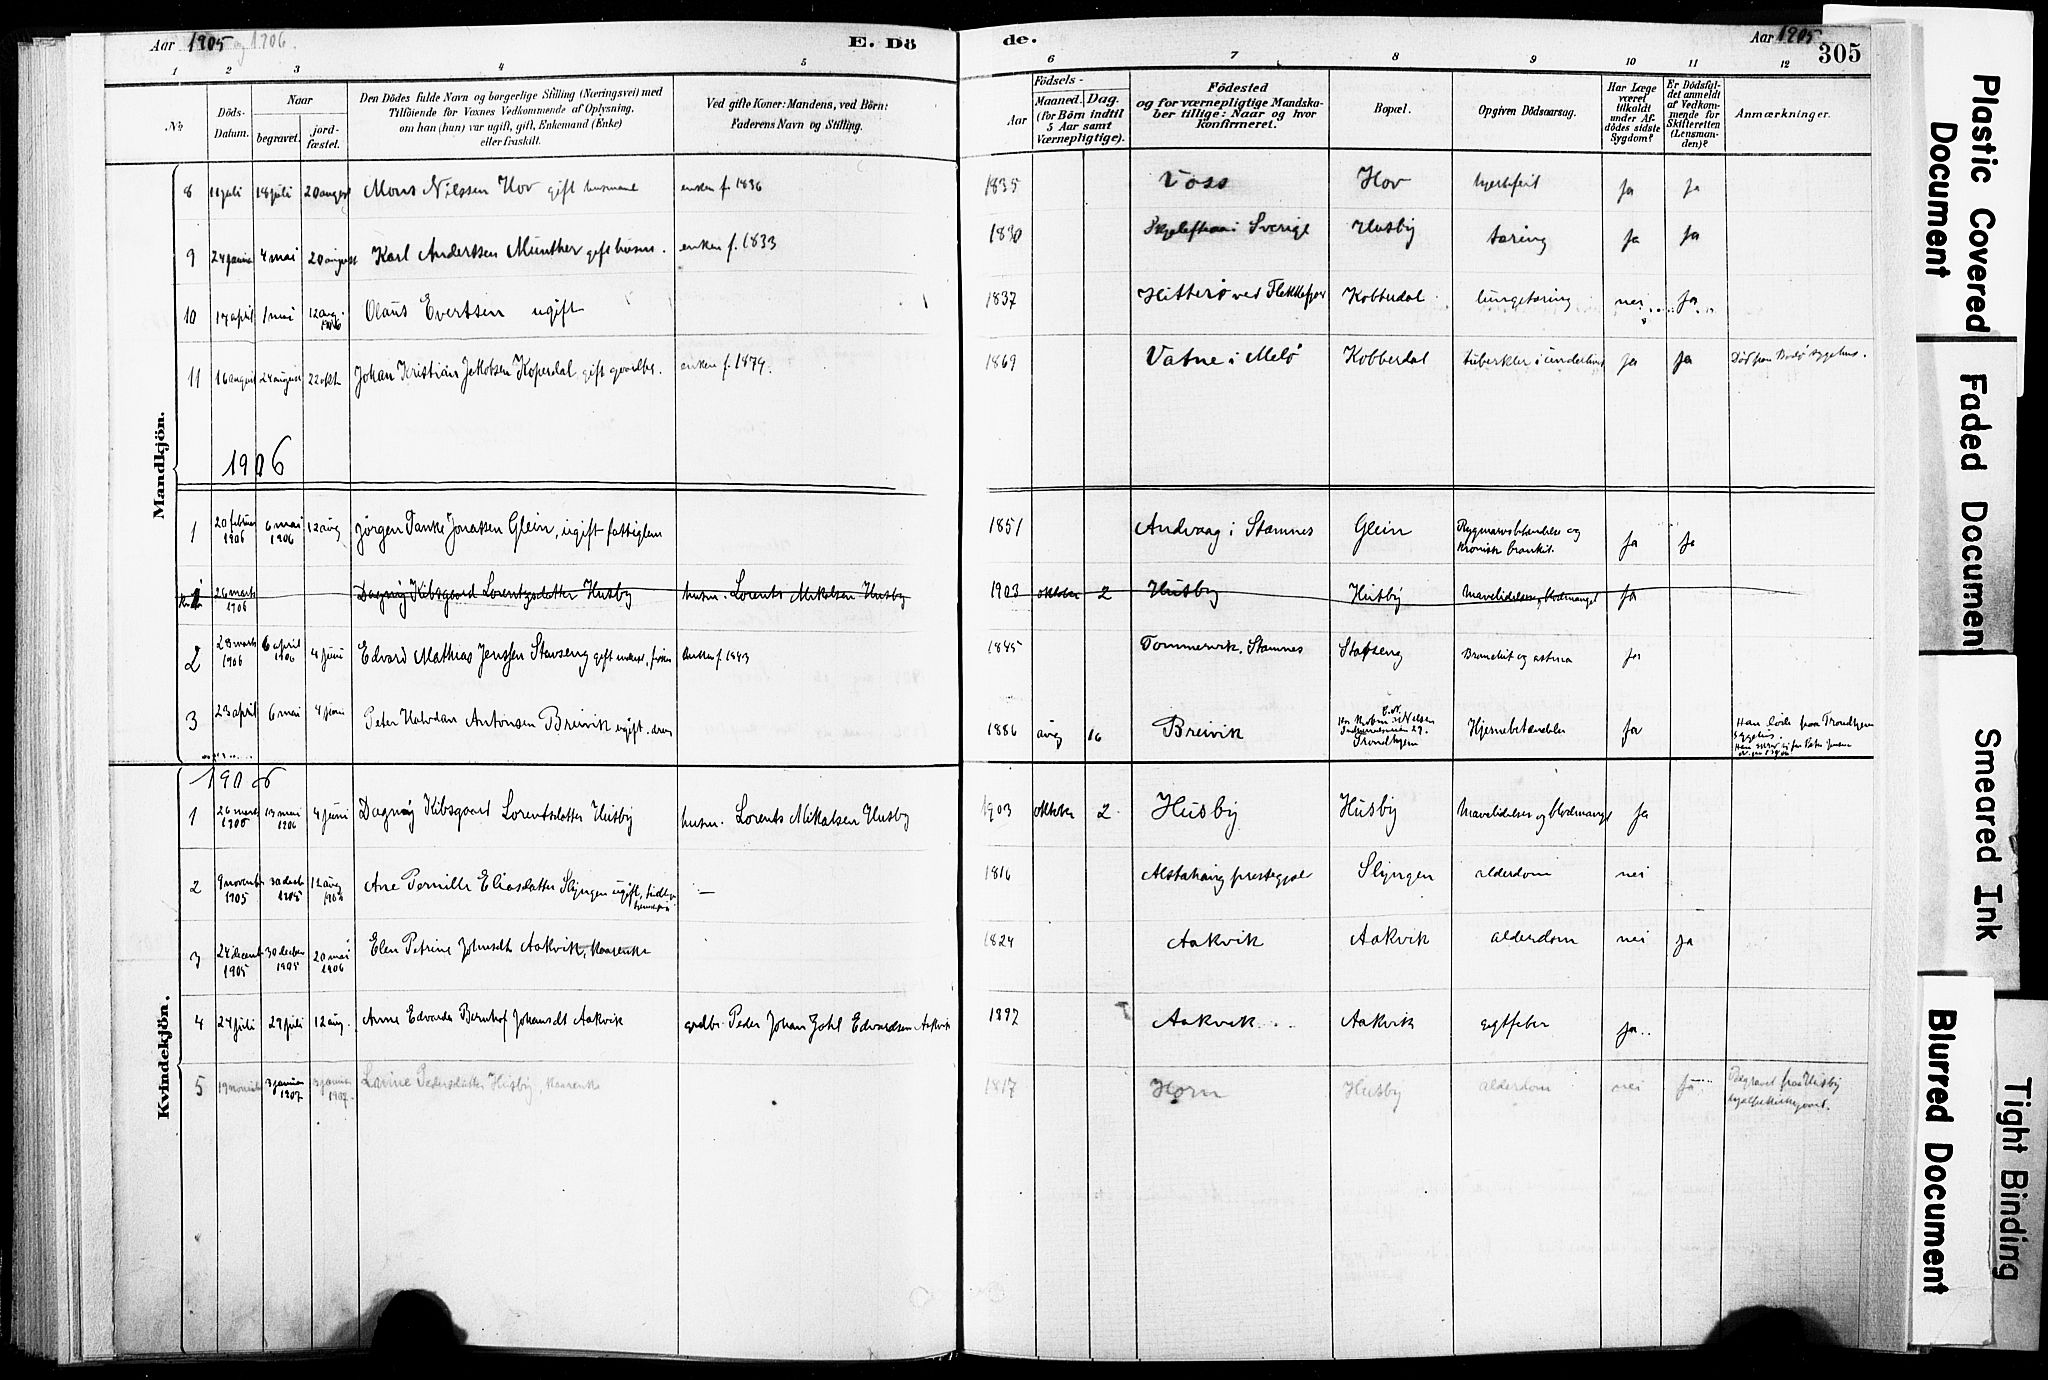 Aar 1905 og 1906.
E. Dö
de.
Aar 1905
305
1 2 3 4 5 6 7 8 9 10 11 12
No
Döds-Datum.
Naar
begravet.
jord-fæstet.
Den Dödes fulde Navn og borgerlige Stilling (Næringsvei) med
Tilföiende for Voxnes Vedkommende af Oplysning,
om han (hun) var ugift, gift, Enkemand (Enke)
eller fraskilt.
Ved gifte Koner: Mandens, ved Börn:
Faderens Navn og Stilling.
Födsels-
Aar
Maaned. Dag.
(for Börn indtil
5 Aar samt
Værnepligtige).
Födested
og for værnepligtige Mandska-
ber tillige: Naar og hvor
konfirmeret.
Bopæl.
Opgiven Dödsaarsag.
Har Læge
været
tilkaldt
under Af-
dödes sidste
Sygdom?
Er Dödsfal-
det anmeldt
af Vedkom-
mende for
Skifteretten
(Lensman-
den)?
Anmærkninger.
Mandkjön.
8 11 juli 18 juli 20 august Mons Nilssen Hov gift husmand enken f. 1836 1835 Voss Hov hjertefeil ja ja
9 24 januar 4 mai 20 august Karl Anderssen Munther gift husm. enken f. 1833 1830 Sverige Husby tæring ja ja
10 17 april 1 mai 12 aug. 1906 Olaus Evertsen ugift 1837 Hitterø ved Flekkefjor Kobberdal lungetæring nei ja
11 16 august 24 august 22 okt. Johan Kristian Jakobsen Koperdal gift gaardbr. enken f. 1879. 1869 Vatne i Melö Kobberdal tuberkler i underlivet ja ja Död paa Bodø sygehus.
1906
1 20 februar 1906 6 mai 1906 12 aug Jørgen Tanke Jonassen Glein, ugift fattiglem 1851 Andvaag i Stamnes Glein Rygmarvsbetændelse og kronisk bronkit. ja ja
1 26 marts 1906 Dagny Kibsgaard Lorentzdatter Husby husm. Lorents Mikalsen Husby 1903 oktober 2 Husby Husby Mavelidelser, blodmangel ja
2 28 marts 1906 6 april 1906 4 juni Edvard Mathias Jenssen Stavseng gift inderst, fisker enken f. 1843 1845 Tommervik. Stamnes Stavseng Bronchit og astma ja
3 23 april 6 mai 4 juni Peter Halvdan Antonsen Breivik ugift. dreng 1886 aug 16 Breivik Trondhjem Hjernebetændelse ja Han døde paa Trondhjem Sygehus.
Kvindekjön.
1906
1 26 marts 1906 13 mai 1906 4 juni Dagny Kibsgaard Lorentsdatter Husby husm. Lorents Mikalsen Husby 1903 oktober 2. Husby Husby Mavelidelser og blodmangel ja
2 9 novemb 1905 30 decb 1905 12 aug 1906 Ane Pernille Eliasdatter Slyngen ugift, tidligere — 1816 Alstahaug prestegjæl Slyngen alderdom nei
3 24 decemb 1905 30 decbr 1905 20 mai 1906 Elen Petrine Johnsdt. Aakvik, kaarenke 1824 Aakvik Aakvik alderdom nei ja
4 24 juli 29 juli 12 aug. Anne Edvarda Bernhof Johansdt Aakvik grdbr. Peder Johan Zahl Edvardsen Aakvik 1897 Aakvik Aakvik gigtfeber ja
5 19 novemb 3 januar 1907 3 januar 1907. Lovine Pedersdatter Husby, kaarenke 1817 Horn Husby alderdom nei ja Begravet paa Husby hjælpekirkegaard.
Plastic Covered Document
Faded Documen
Smeared Ink
Blurred Document
Tight Binding